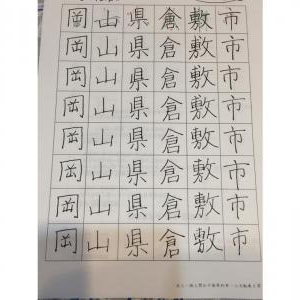 岡山県倉敷市
岡山県倉敷市
岡山県倉敷市
岡山県倉敷市
岡山県倉敷市
岡山県倉敷市
岡山県倉敷市
岡山県倉敷市